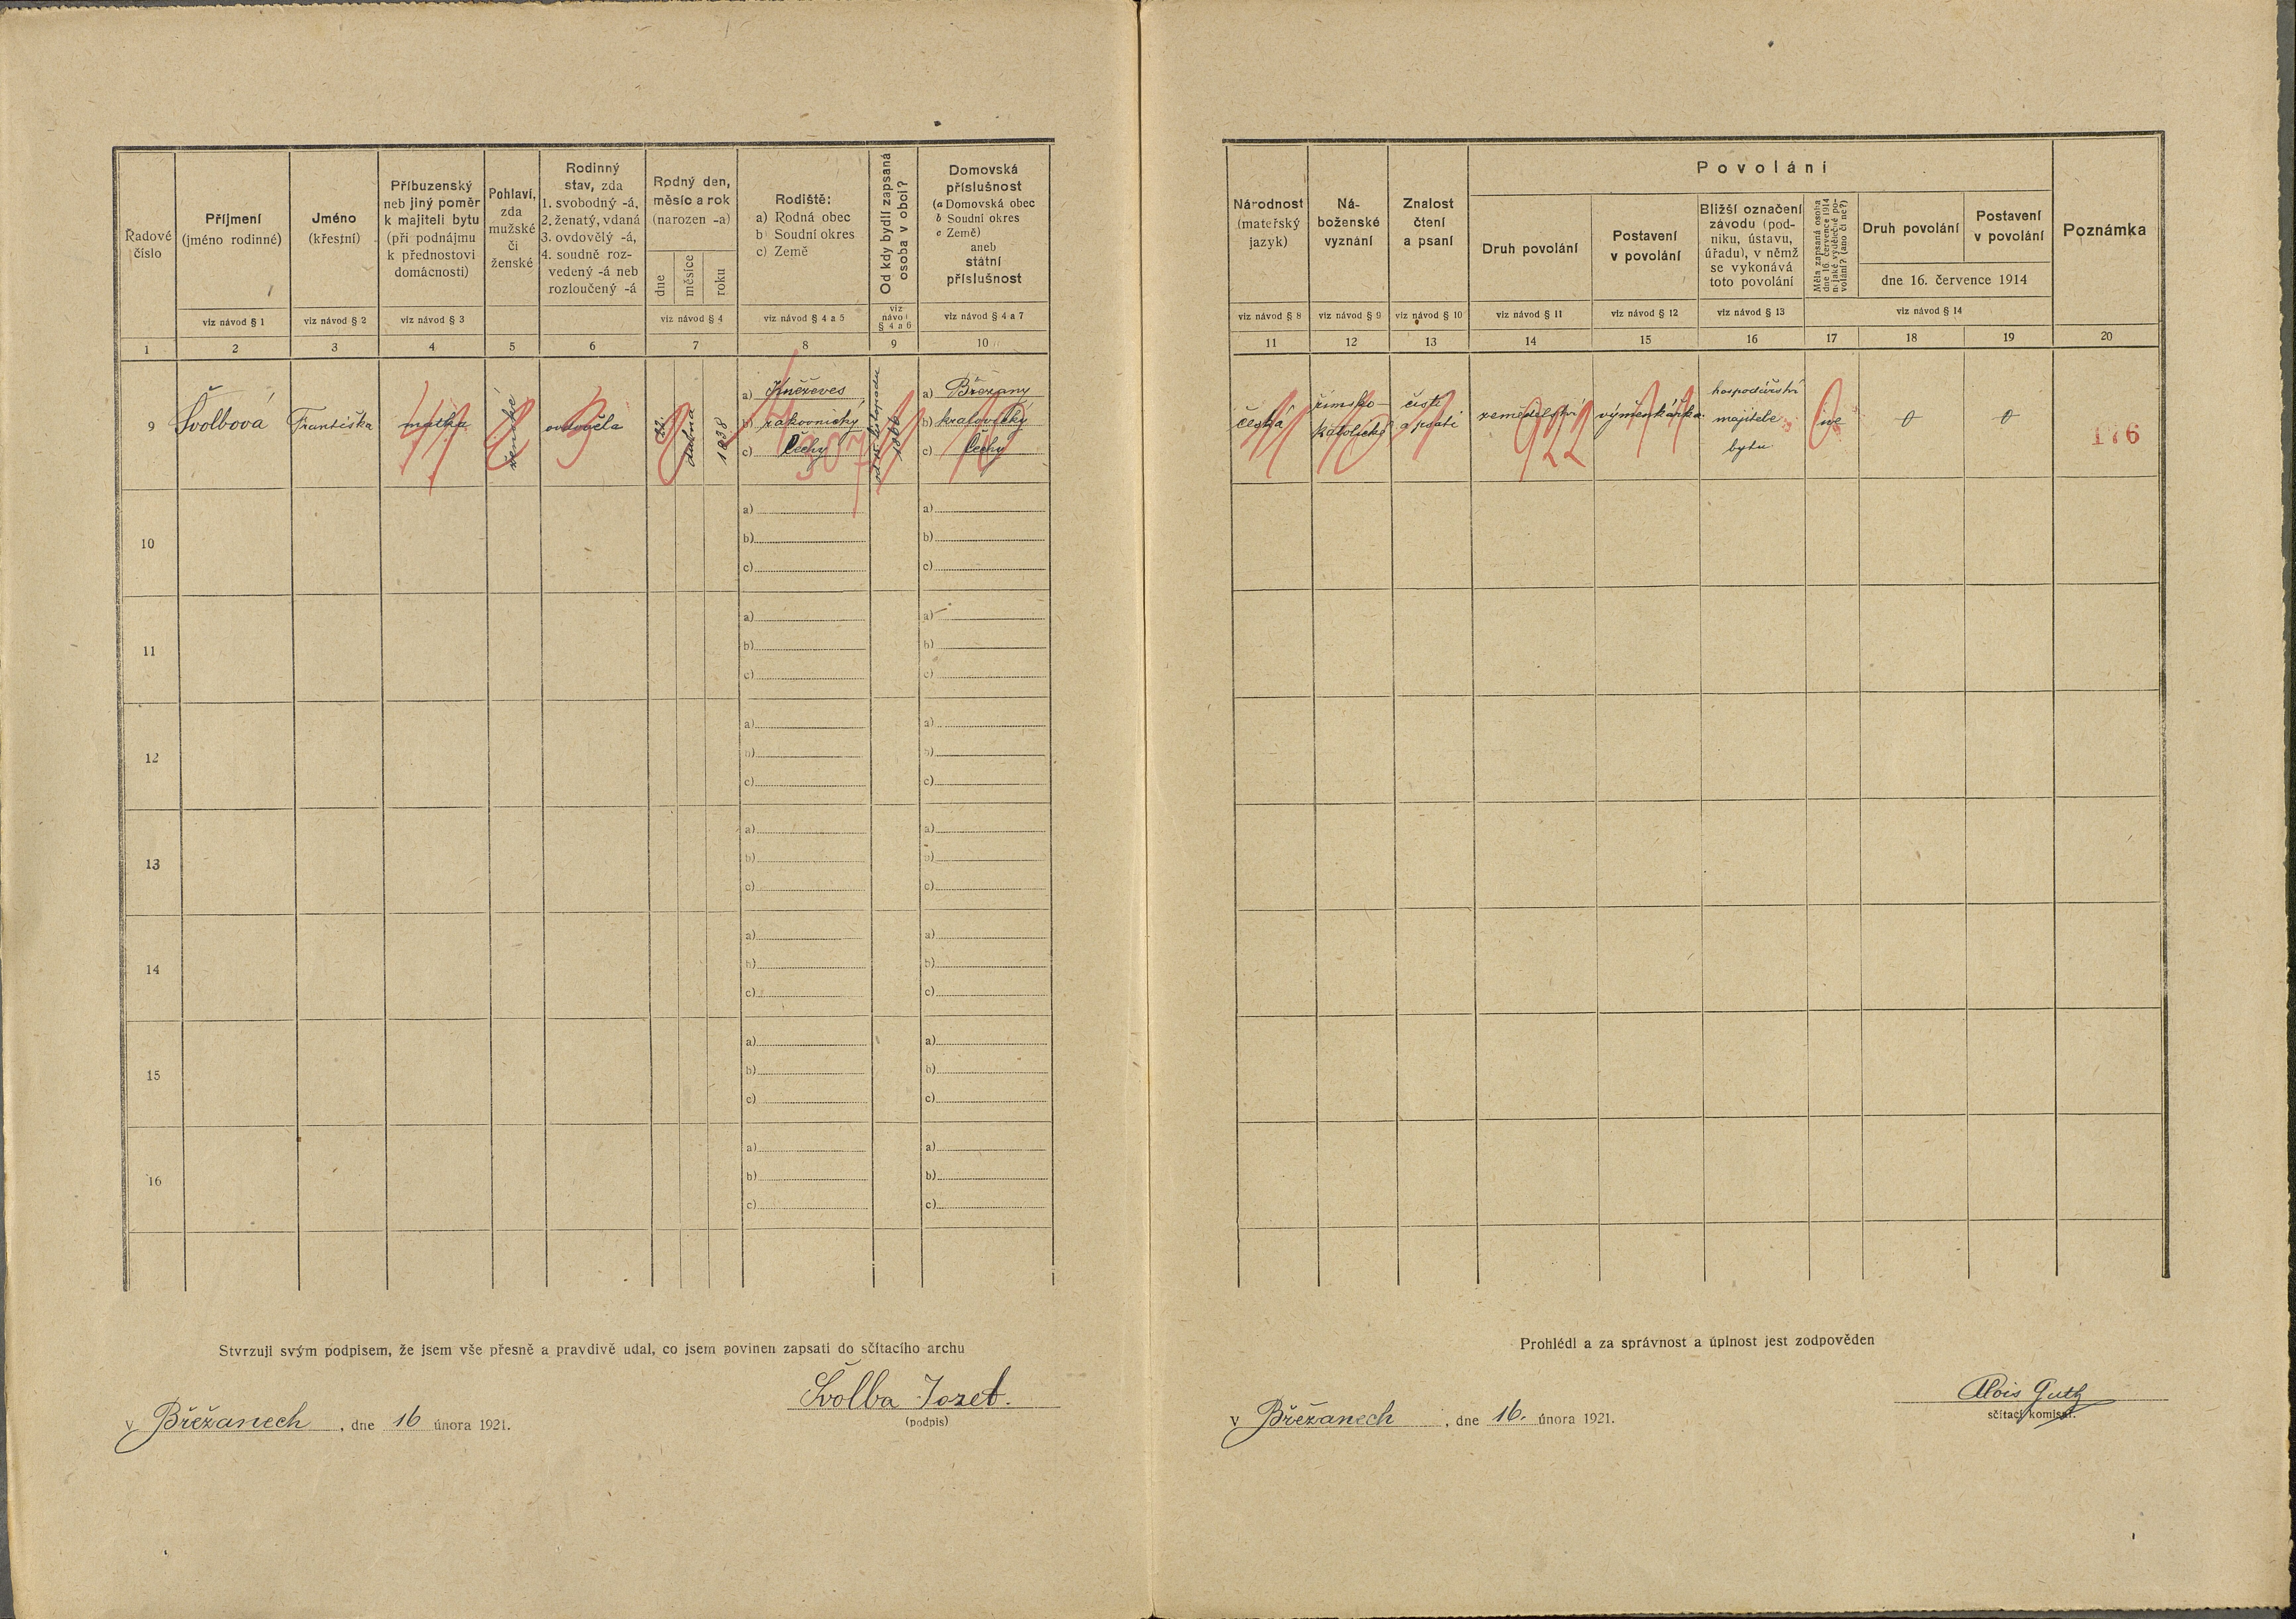 Řadové číslo
Příjmení
(jméno rodinné)
viz návod § 1
Jméno
(křestní)
viz návod § 2
Příbuzenský
neb jiný poměr
k majiteli bytu
(při podnájmu
k přednostovi
domácnosti)
viz návod § 3
Pohlaví,
zda
mužské
či
ženské
Rodinný
stav, zda
1. svobodný -á,
2. ženatý, vdaná
3. ovdovělý -á,
4. soudně roz-
vedený -á neb
rozloučený -á
Rodný den,
měsíc a rok
(narozen -a)
dne
měsíce
roku
viz návod § 4
Rodiště:
a) Rodná obec
b) Soudní okres
c) Země
viz návod § 4 a 5
Od kdy bydlí zapsaná
osoba v obci?
viz
návod
§ 4 a 6
Domovská
příslušnost
(a Domovská obec
b Soudní okres
c Země)
aneb
státní
příslušnost
viz návod § 4 a 7
1 2 3 4 5 6 7 8 9 10
9 Švolbová Františka matka ženské ovdověla
22 dubna 1838
a) Kněževes
b) rakovnický
c) Čechy
od 15 listopadu
1866
a) Břežany
b) kralovický
c) Čechy
10
a)
b)
c)
a)
b)
c)
11
a)
b)
c)
a)
b)
c)
12
a)
b)
c)
a)
b)
c)
13
a)
b)
c)
a)
b)
c)
14
a)
b)
c)
a)
b)
c)
15
a)
b)
c)
a)
b)
c)
16
a)
b)
c)
a)
b)
c)
Stvrzuji svým podpisem, že jsem vše přesně a pravdivě udal, co jsem povinen zapsati do sčítacího archu
Švolba Josef.
(podpis)
v Břežanech, dne 16 února 1921.
Národnost
(mateřský
jazyk)
viz návod § 8
Ná-
boženské
vyznání
viz návod § 9
Znalost
čtení
a psaní
viz návod § 10
Povolání
Druh povolání
viz návod § 11
Postavení
v povolání
viz návod § 12
Bližší označení
závodu (pod-
niku, ústavu,
úřadu), v němž
se vykonává
toto povolání
viz návod § 13
Měla zapsaná osoba
dne 16. července 1914
n. jaké výdělečné po-
volání? (ano či ne?)
Druh povolání
Postavení
v povolání
dne 16. července 1914
viz návod § 14
Poznámka
11 12 13 14 15 16 17 18 19 20
česká
římsko-
katolické
čísti
a psáti
922
zemědělství
výměnkářka
hospodářství
majitele
bytu
ne
0
0
176
Prohlédl a za správnost a úplnost jest zodpověden
Alois Guth
sčítací komisař.
v Břežanech, dne 16. února 1921.